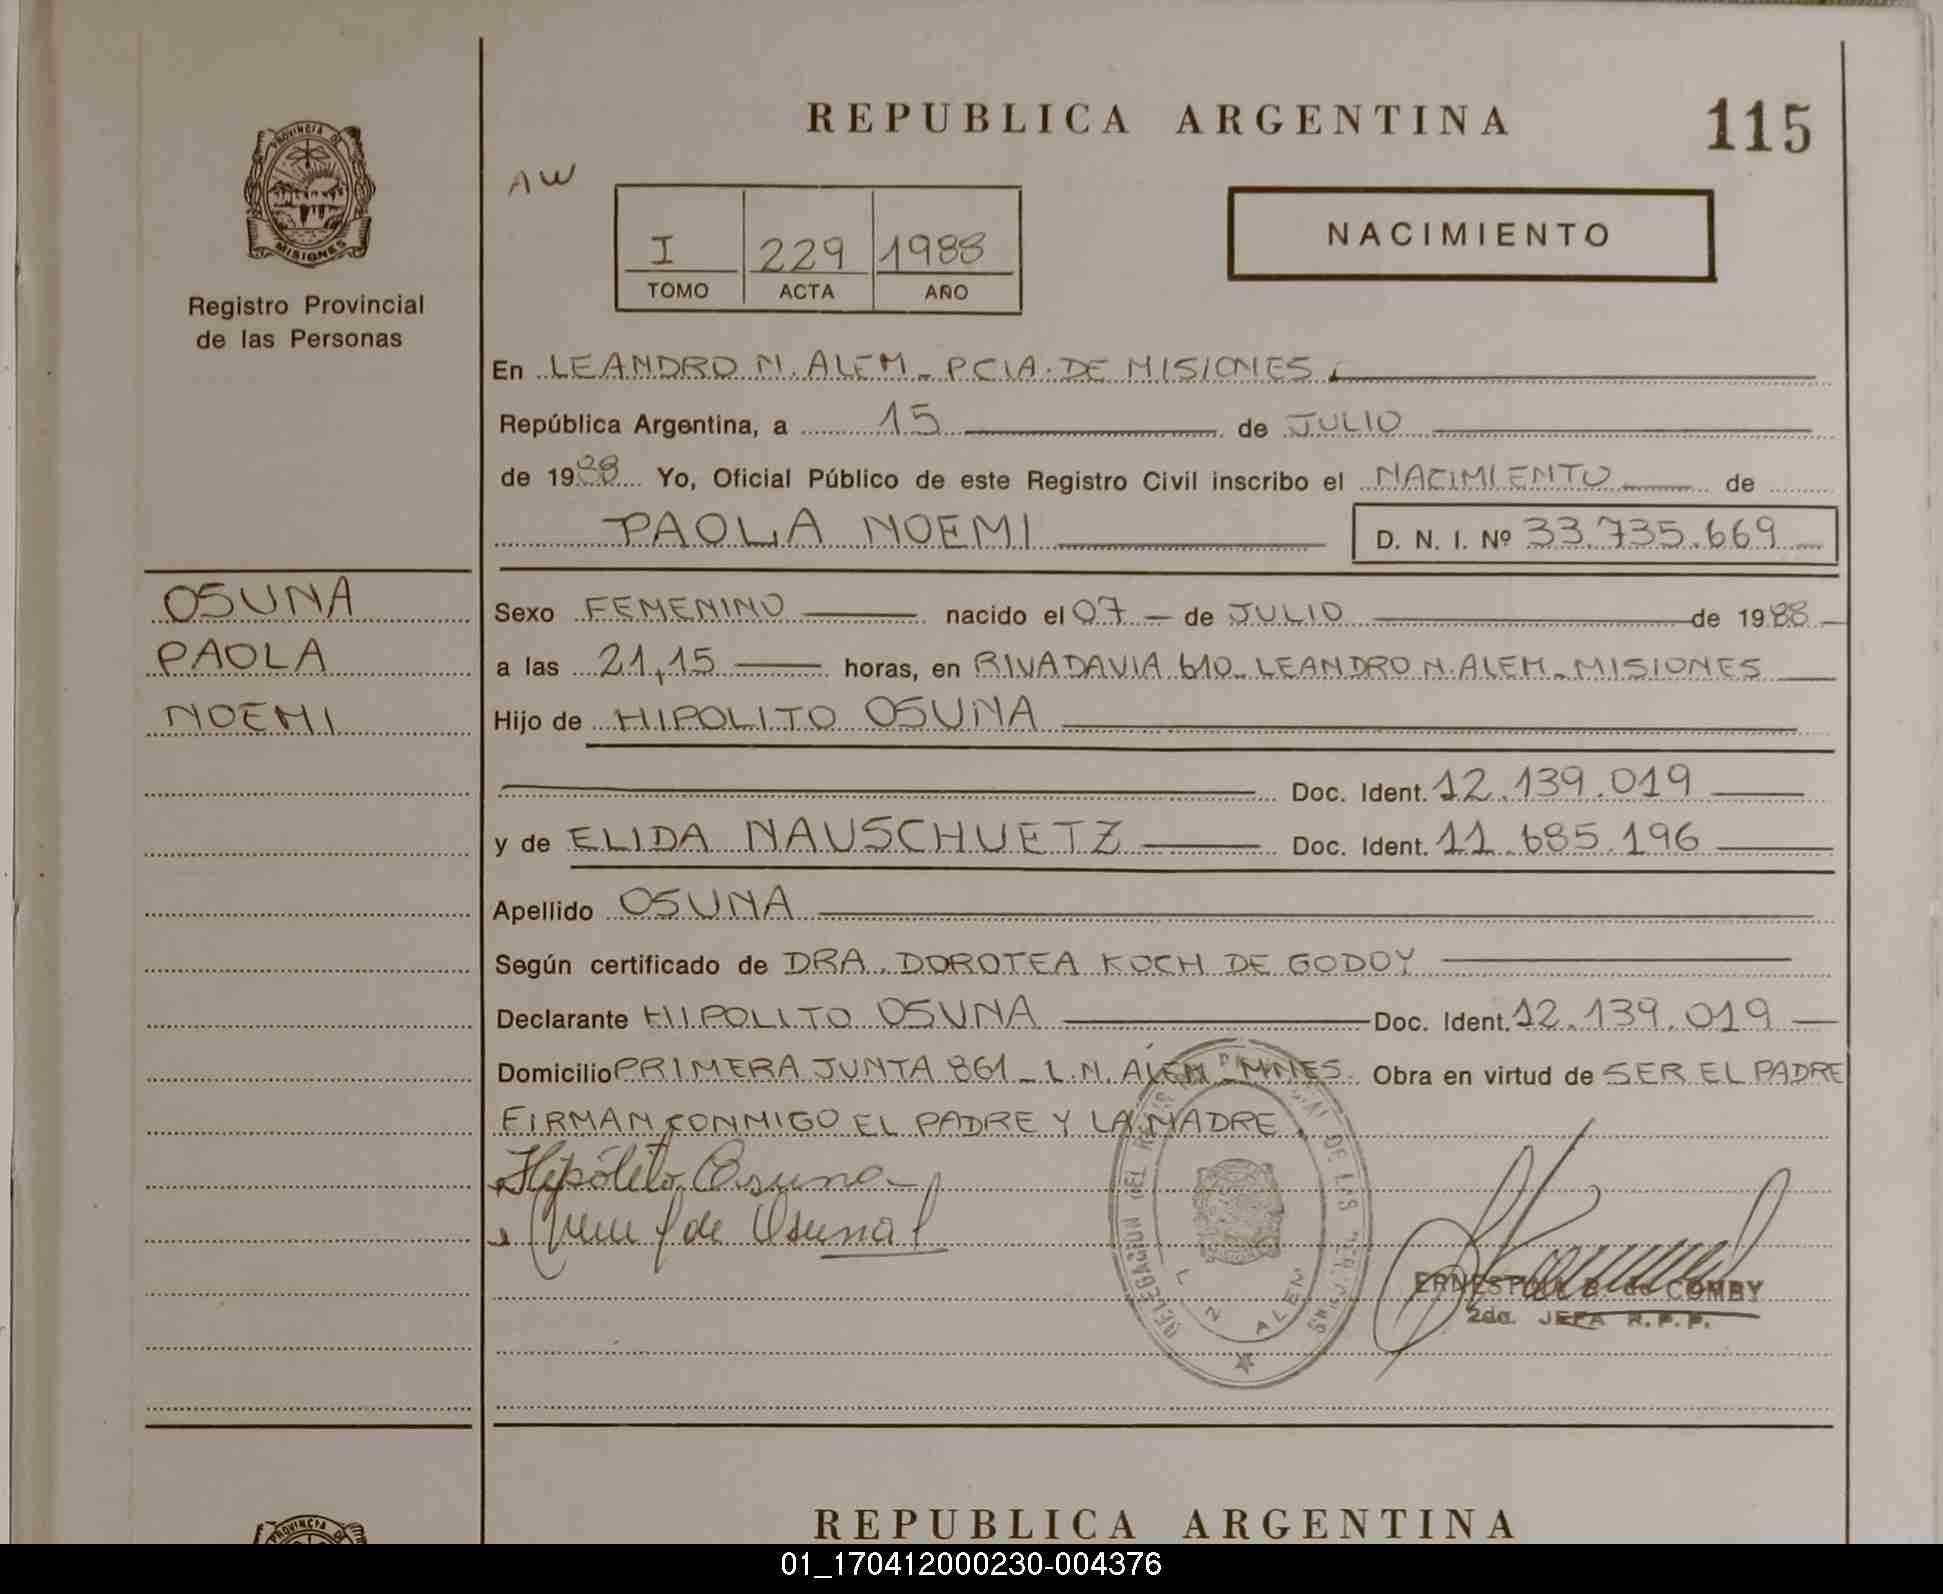 REPUBLICA ARGENTINA
115
PROVINCIA DE
MISIONES
Registro Provincial
de las Personas
AW
I 229 1988
TOMO ACTA AÑO
NACIMIENTO
En LEANDRO N. ALEM - PCIA. DE MISIONES
República Argentina, a 15 de JULIO
de 1988 Yo, Oficial Público de este Registro Civil inscribo el NACIMIENTO de
PAOLA NOEMI D. N. I. Nº 33.735.669
OSUNA
PAOLA
NOEMI
Sexo FEMENINO nacido el 07 - de JULIO de 1988
a las 21,15 horas, en RIVADAVIA 610 - LEANDRO N. ALEM - MISIONES
Hijo de HIPOLITO OSUNA
Doc. Ident. 12.139.019
y de ELIDA NAUSCHUETZ Doc. Ident. 11.685.196
Apellido OSUNA
Según certificado de DRA. DOROTEA KOCH DE GODOY
Declarante HIPOLITO OSUNA Doc. Ident. 12.139.019
Domicilio PRIMERA JUNTA 861 - L.N. ALEM - MNES. Obra en virtud de SER EL PADRE
FIRMAN CONMIGO EL PADRE Y LA MADRE.
Hipólito Osuna
de Osuna
DELEGACION DEL DE LAS
L N ALEM
de COMBY
2da. JEFA R.P.P.
REPUBLICA ARGENTINA
PROVINCIA DE
01_170412000230-004376